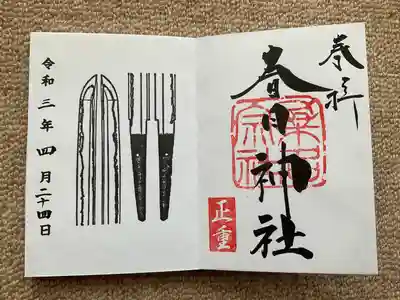 奉拝
春日神社
正重
令和三年四月二十四日